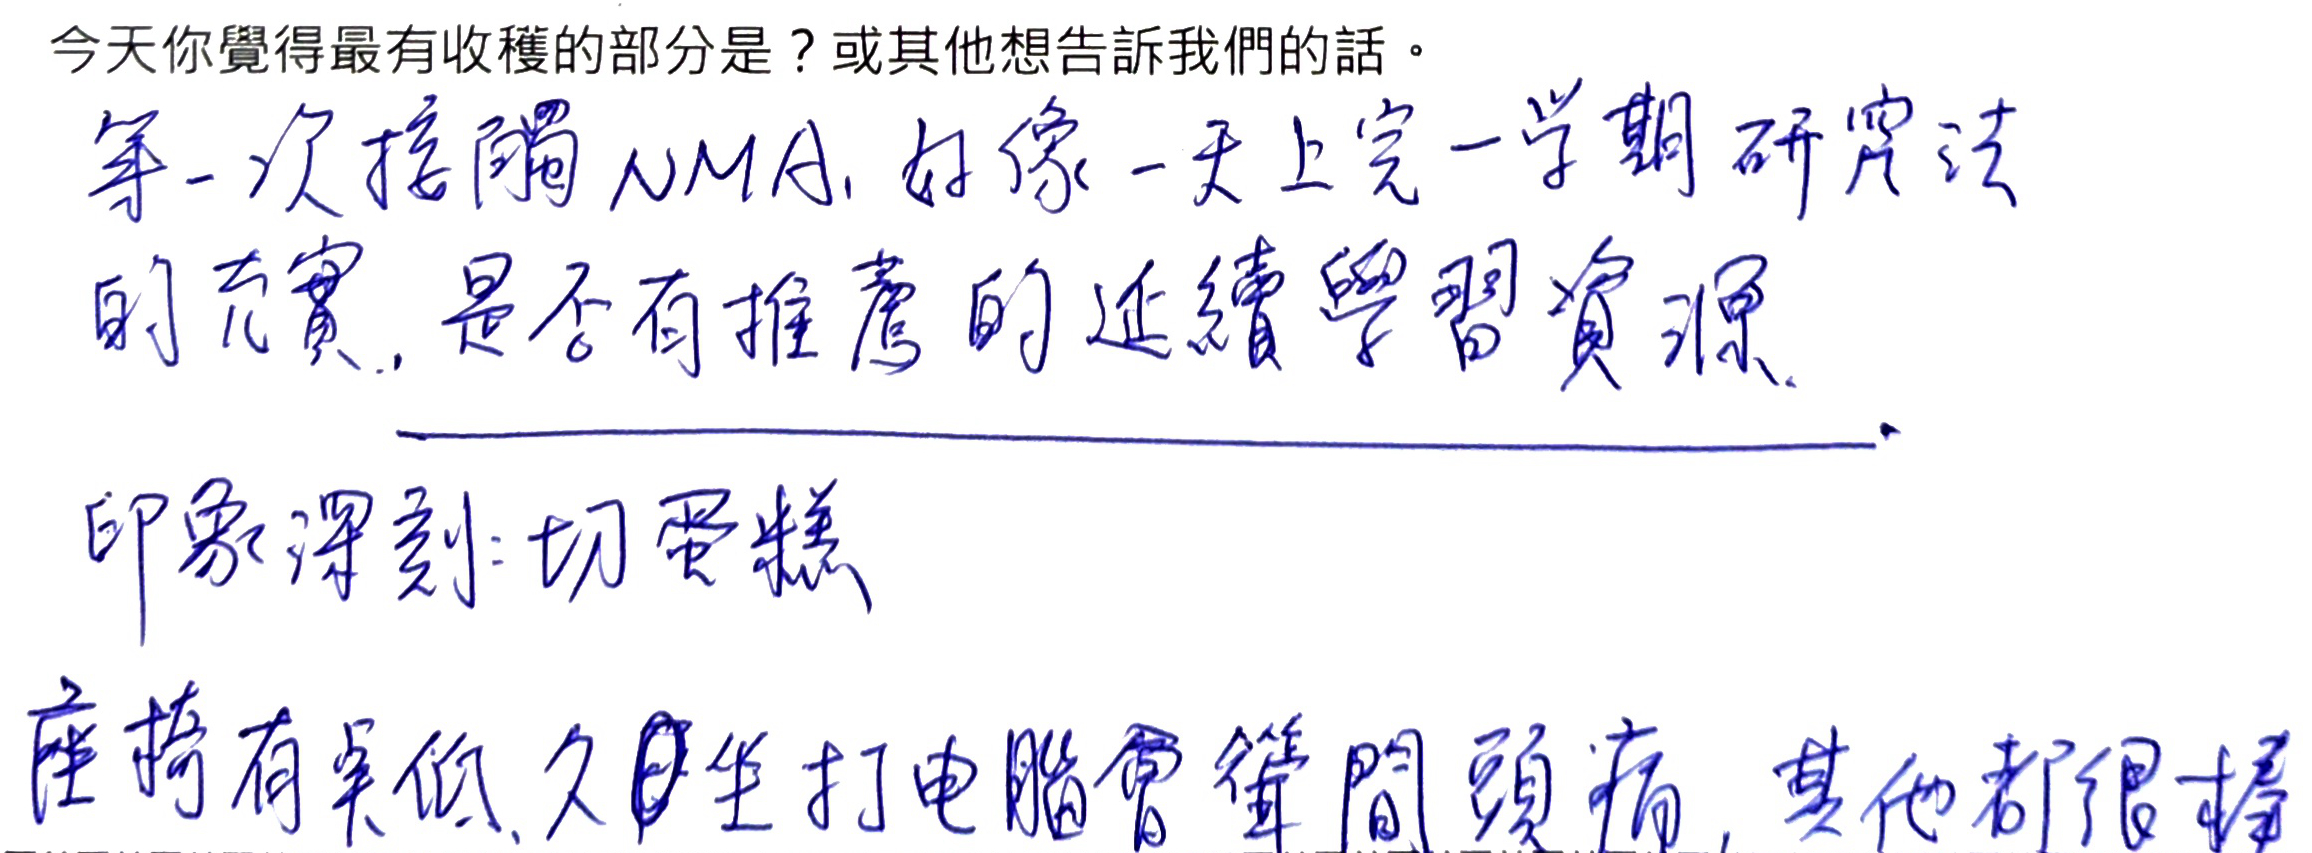 今天你覺得最有收穫的部分是？或其他想告訴我們的話。
第一次接觸NMA，好像一天上完一学期研究法
的充實，是否有推薦的延續學習資源.
印象深刻：切蛋糕
座椅有点低，久坐打电腦會聳肩頭痛，其他都很棒